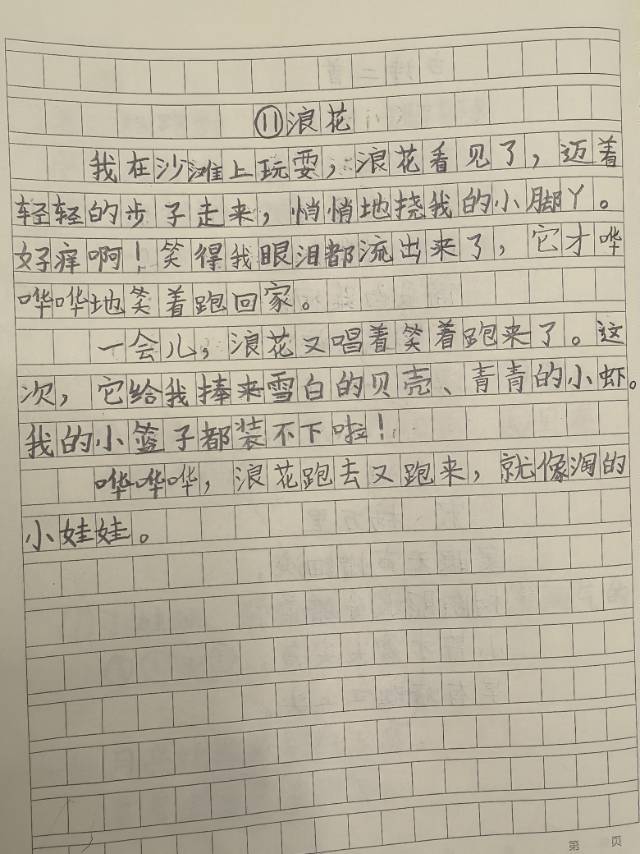 ⑪浪花
我在沙滩上玩耍，浪花看见了，迈着
轻轻的步子走来，悄悄地挠我的小脚丫。
好痒啊！笑得我眼泪都流出来了，它才哗
哗哗地笑着跑回家。
一会儿，浪花又唱着笑着跑来了。这
次，它给我捧来雪白的贝壳、青青的小虾。
我的小篮子都装不下啦！
哗哗哗，浪花跑去又跑来，就像淘的
小娃娃。
第 页